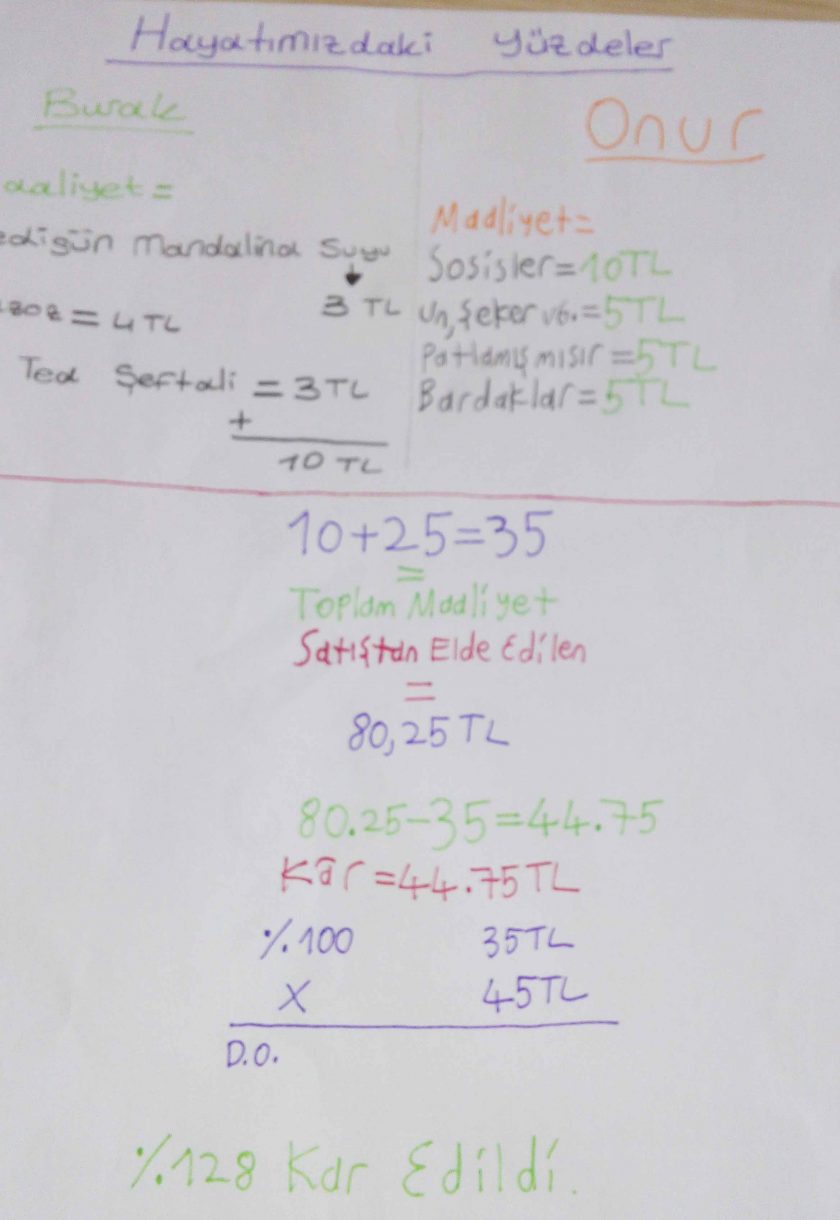 Hayatımızdaki Yüzdeler
Burak
aaliyet =
edigün Mandalina Suyu
3 TL
= 4 TL
Tea Şeftali = 3 TL
+
10 TL
Onur
Maaliyet=
Sosisler=10TL
Un, Şeker vb.=5TL
Patlamış mısır=5TL
Bardaklar=5TL
10+25=35
=
Toplam Maaliyet
Satıştan Elde Edilen
=
80,25 TL
80.25-35=44.75
Kâr=44.75 TL
%100 35TL
X 45TL
D.O.
%128 Kar Edildi.